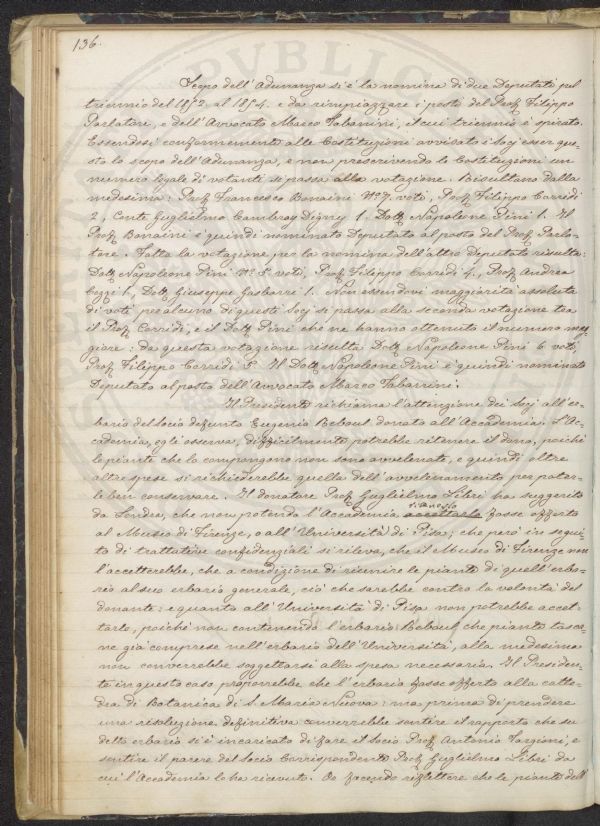 136.
Scopo dell'Adunanza si è la nomina di due Deputati pel
triennio del 1872. al 1874. e da rimpiazzare i posti del Prof. Filippo
Parlatore, e dell'Avvocato Marco Tabarrini, il cui triennio è spirato.
Essendosi conformemente alle Costituzioni avvisati i Socj esser que-
sto lo scopo dell'Adunanza, e non prescrivendo le Costituzioni un
numero legale di votanti si passa alla votazione. Riscultano dalla
medesima: Prof. Francesco Bonaini N.º 7. voti, Prof. Filippo Corridi
2, Conte Guglielmo Cambray Digny 1, Dott. Napoleone Pini 1. Il
Prof. Bonaini è quindi nominato Deputato al posto del Prof. Parla-
tore. Fatta la votazione per la nomina dell'altro Deputato risulta:
Dott. Napoleone Pini N.º 5 voti, Prof. Filippo Corridi 4., Prof. Andrea
Cozzi 1, Dott. Giuseppe Gasbarri 1. Non essendovi maggiorità assoluta
di voti per alcuno di questi Socj si passa alla seconda votazione tra
il Prof. Corridi, e il Dott. Pini che ne hanno ottenuto il numero mag-
giore: da questa votazione risulta Dott. Napoleone Pini 6 voti,
Prof. Filippo Corridi 5. Il Dott. Napoleone Pini è quindi nominato
Deputato al posto dell'Avvocato Marco Tabarrini.
Il Presidente richiama l'attenzione dei Socj all'er-
bario del Socio defunto Eugenio Reboul donato all'Accademia. L'Ac-
cademia, egli osserva, difficilmente potrebbe ritenere il dono, poiché
le piante che lo compongono non sono avvelenate, e quindi oltre
altre spese si richiederebbe quella dell'avvelenamento per poter-
le ben conservare. Il donatore Prof. Guglielmo Libri ha suggerito
da Londra, che non potendo l'Accademia accettarlo fosse offerto
al Museo di Firenze, o all'Università di Pisa; che però in segui-
to di trattative confidenziali si rileva, che il Museo di Firenze non
l'accetterebbe, che a condizione di riunire le piante di quell'erba-
rio al suo erbario generale, ciò che sarebbe contro la volontà del
donante: e quanto all'Università di Pisa non potrebbe accet-
tarlo, poiché non contenendo l'erbario Reboul che piante tosca-
ne già comprese nell'erbario dell'Università, alla medesima
non converrebbe soggettarsi alla spesa necessaria. Il Presiden-
te in questo caso proporrebbe che l'erbario fosse offerto alla catte-
dra di Botanica di S. Maria Nuova: ma prima di prendere
una risoluzione definitiva converrebbe sentire il rapporto che su
detto erbario si è incaricato di fare il Socio Prof. Antonio Targioni, e
sentire il parere del Socio Corrispondente Prof. Guglielmo Libri da
cui l'Accademia lo ha ricevuto. Or facendo riflettere che le piante dell'